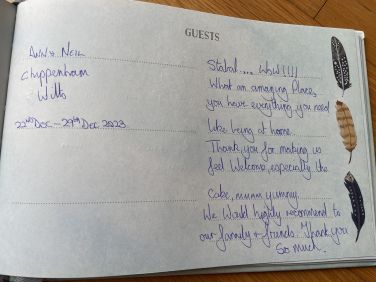 GUESTS
Ann & Neil
Chippenham
Wilts
22nd Dec - 29th Dec 2023
.... WOW!!!!
What an amazing place,
you have everything you need
like being at home.
Thank you for making us
feel Welcome, especially the
Cake, mmm yummy.
We Would highly recommend to
our family & friends. Thank you
So much.